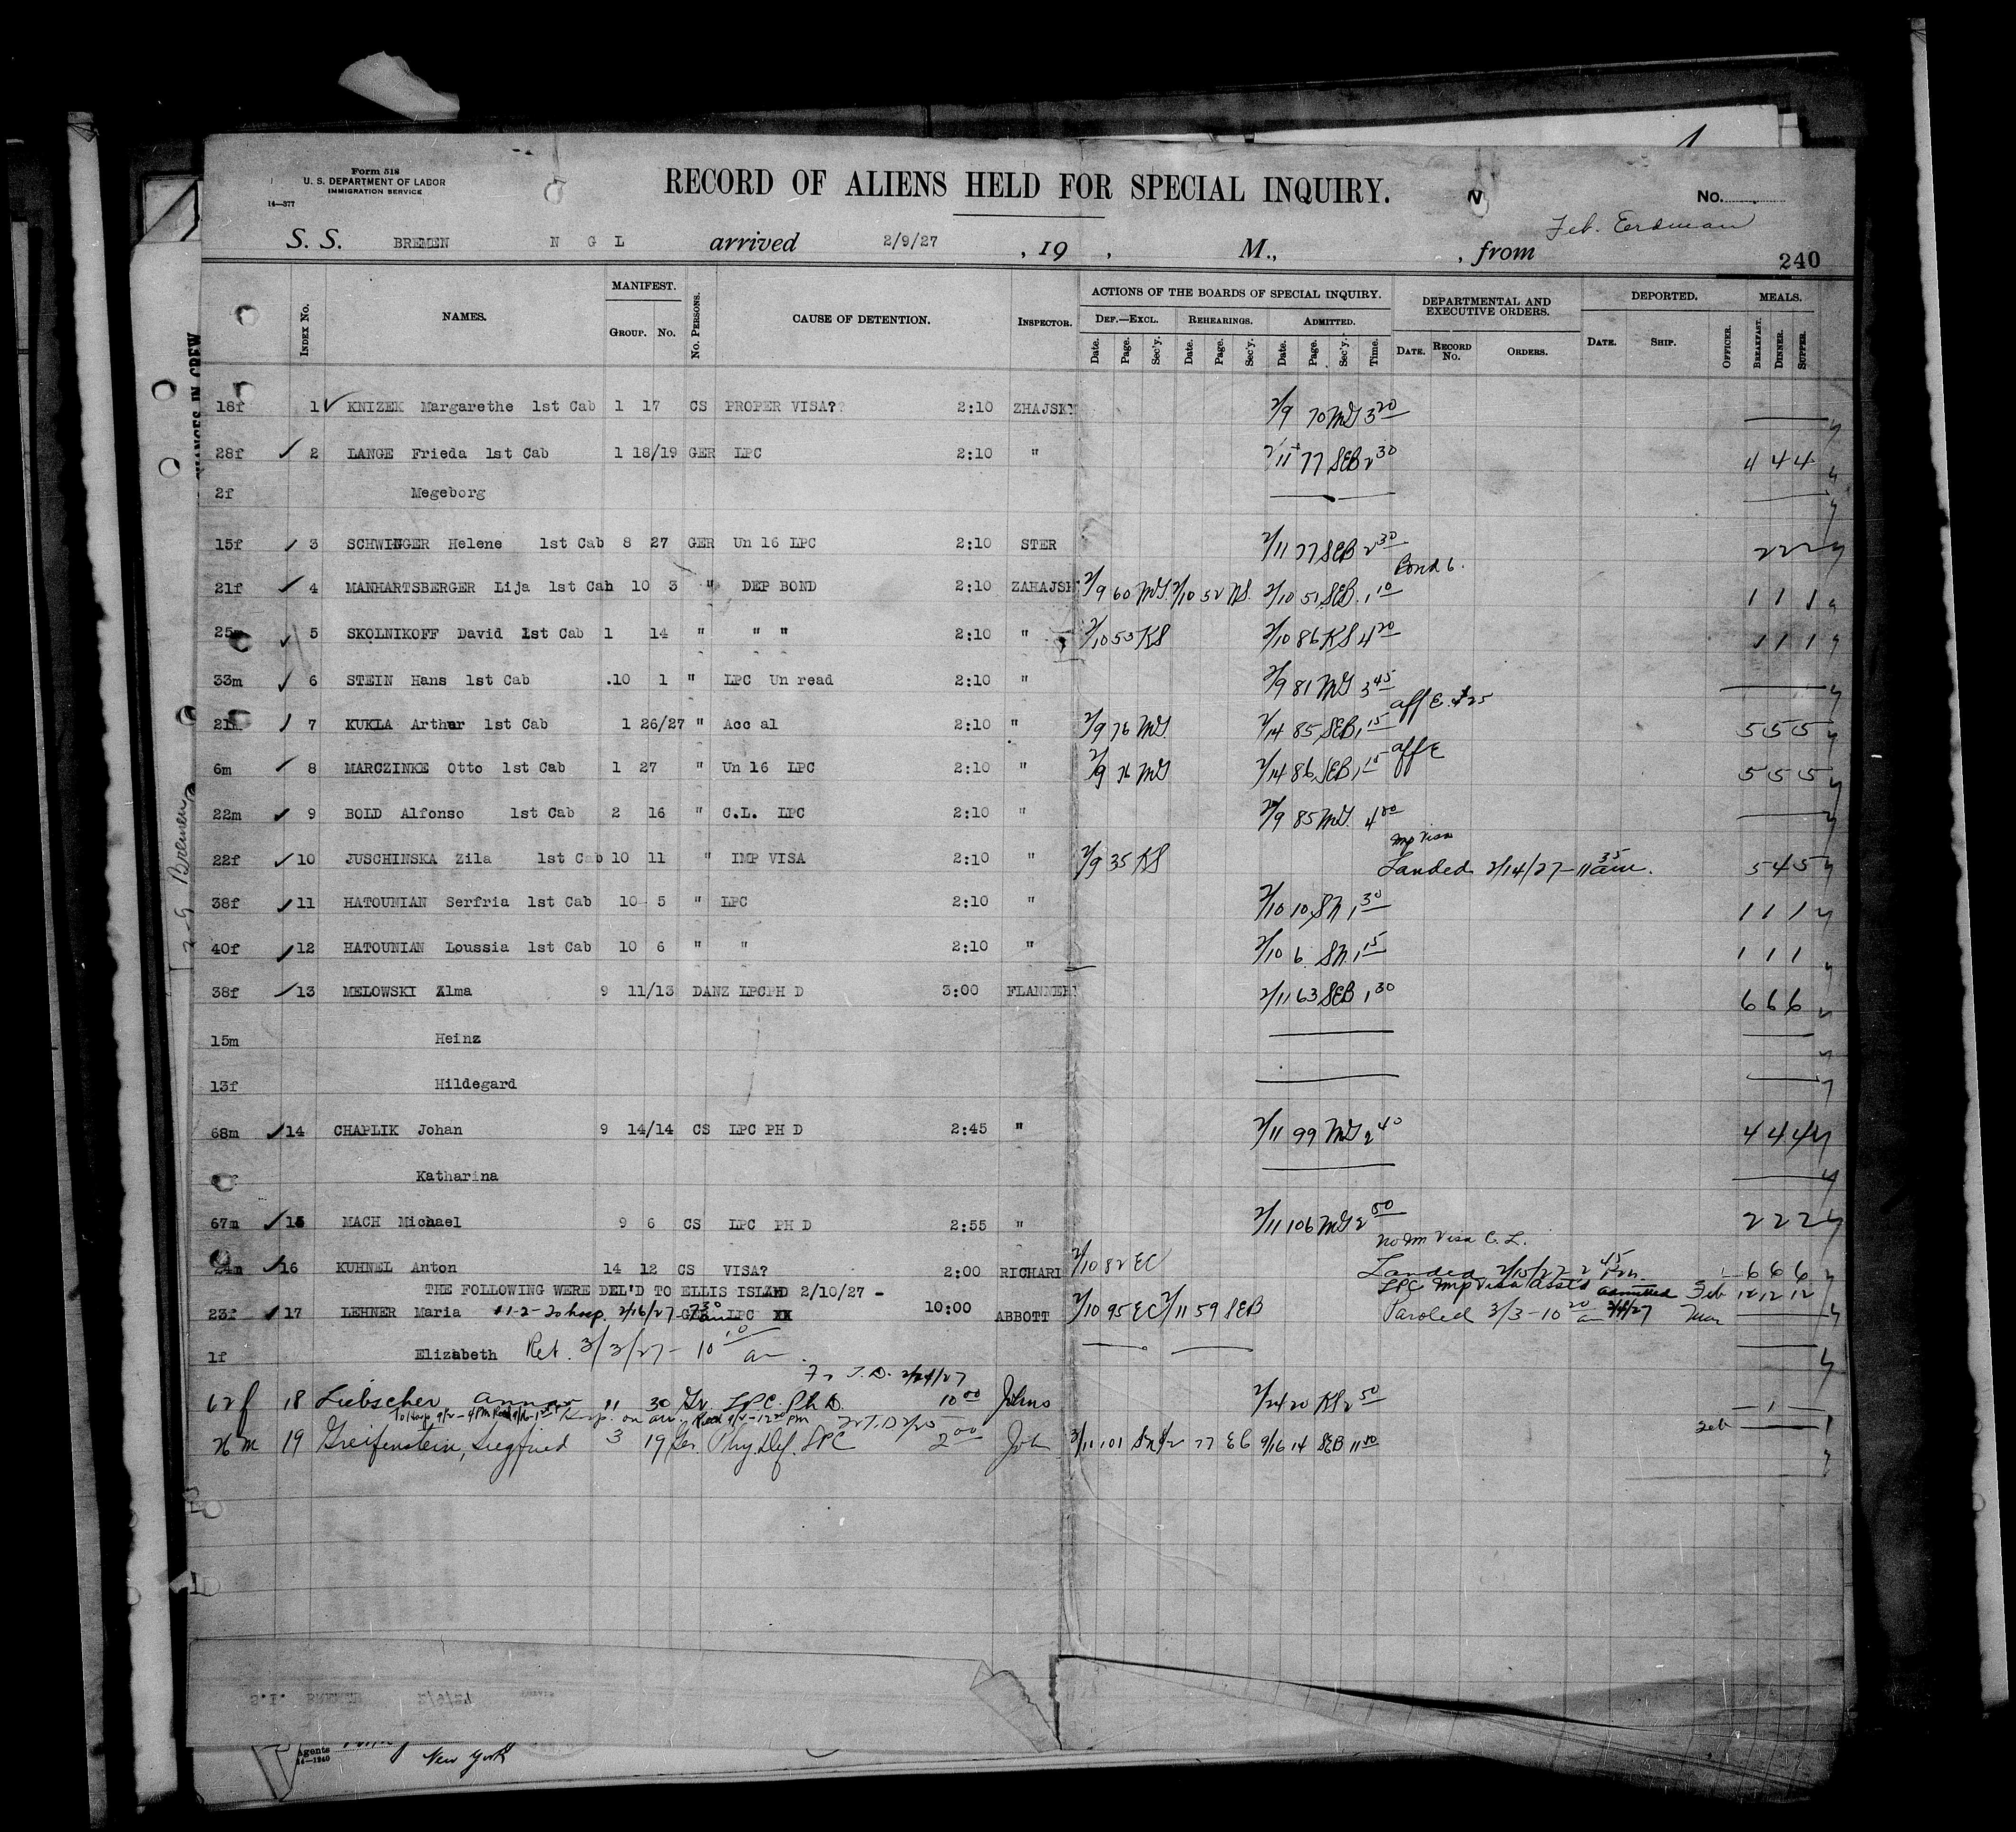 Form 518
U. S. DEPARTMENT OF LABOR
IMMIGRATION SERVICE
14—377
RECORD OF ALIENS HELD FOR SPECIAL INQUIRY.
No.
Feb. Erdman
S. S. BREMEN N G L arrived 2/9/27 , 19 , M., , from
240
INDEX No. NAMES. MANIFEST. GROUP. No. No. PERSONS. CAUSE OF DETENTION. INSPECTOR. ACTIONS OF THE BOARDS OF SPECIAL INQUIRY. DEF.—EXCL. Date. Page. Sec'y. REHEARINGS. Date. Page. Sec'y. ADMITTED. Date. Page. Sec'y. Time. DEPARTMENTAL AND EXECUTIVE ORDERS. DATE. RECORD No. ORDERS. DEPORTED. DATE. SHIP. OFFICER. MEALS. BREAKFAST. DINNER. SUPPER.
18f 1 KNIZEK Margarethe 1st Cab 1 17 CS PROPER VISA? 2:10 ZHAJSKY 2/9 70 MG 3 20
28f 2 LANGE Frieda 1st Cab 1 18/19 GER LPC 2:10 " 2/11 77 SEB 2 30 4 4 4
2f Megeborg
15f 3 SCHWINGER Helene 1st Cab 8 27 GER Un 16 LPC 2:10 STER 2/11 77 SEB 2 30 2 2 2
Bond 6.
21f 4 MANHARTSBERGER Lija 1st Cab 10 3 " DEP BOND 2:10 ZAHAJSK 2/9 60 MG 2/10 52 NS. 2/10 51 SEB. 1 10 1 1 1
25m 5 SKOLNIKOFF David 1st Cab 1 14 " " " 2:10 " 2/10 53 KS 2/10 86 KS 4 20 1 1 1
33m 6 STEIN Hans 1st Cab 10 1 " LPC Un read 2:10 " 2/9 81 MG 3 45
aff E. $25
21 7 KUKLA Arthur 1st Cab 1 26/27 " Acc al 2:10 " 2/9 76 MG. 2/14 85 SEB 1 15 5 5 5
aff E
6m 8 MARCZINKE Otto 1st Cab 1 27 " Un 16 LPC 2:10 " 2/9 76 MG 2/14 86 SEB 1 15 5 5 5
22m 9 BOLD Alfonso 1st Cab 2 16 " C.L. LPC 2:10 " 2/9 85 MG. 4 00
Imp Visa
22f 10 JUSCHINSKA Zila 1st Cab 10 11 " IMP VISA 2:10 " 2/9 35 KS Landed 2/14/27 - 11 35 am. 5 4 5
38f 11 HATOUNIAN Serfria 1st Cab 10 5 " LPC 2:10 " 2/10 10 SN 1 30 1 1 1
40f 12 HATOUNIAN Loussia 1st Cab 10 6 " " 2:10 " 2/10 6 SN. 1 15 1 1 1
38f 13 MELOWSKI Alma 9 11/13 DANZ LPCPH D 3:00 FLANNERY 2/11 63 SEB 1 30 6 6 6
15m Heinz
13f Hildegard
68m 14 CHAPLIK Johan 9 14/14 CS LPC PH D 2:45 " 2/11 99 MG 2 40 4 4 4
Katharina
67m 15 MACH Michael 9 6 CS LPC PH D 2:55 " 2/11 106 MG 2 50 2 2 2
no Im Visa C. L.
24m 16 KUHNEL Anton 14 12 CS VISA? 2:00 RICHARI 2/10 82 EC Landed 2/15/27 - 2 45 Pm 6 6 6
THE FOLLOWING WERE DEL'D TO ELLIS ISLAND 2/10/27 -
LPC Imp Visa admitted Feb 12 12 12
23f 17 LEHNER Maria #1-2- To hosp. 2/16/27 - 7 30 am GER LPC 10:00 ABBOTT 2/10 95 EC 2/11 59 SEB Paroled 3/3 - 10 20 am Mar
1f Elizabeth Ret. 3/3/27 - 10 10 am
Fr I.D. 2/24/27
62f 18 Liebscher Anna 11 30 Gr. LPC. Ph D. 10 00 Johns 2/24 20 KS 2 50 1
Feb
26 m 19 Greifenstein, Siegfried 3 19 Ger. Phy. Def. LPC 2 00 Joh 3/11 101 SN 77 EC 9/16 14 SEB 11 00
CHANGES IN CREW
2-9 Bremen
S.I. BREMEN 2/9/27
Agents
14—1240
New York